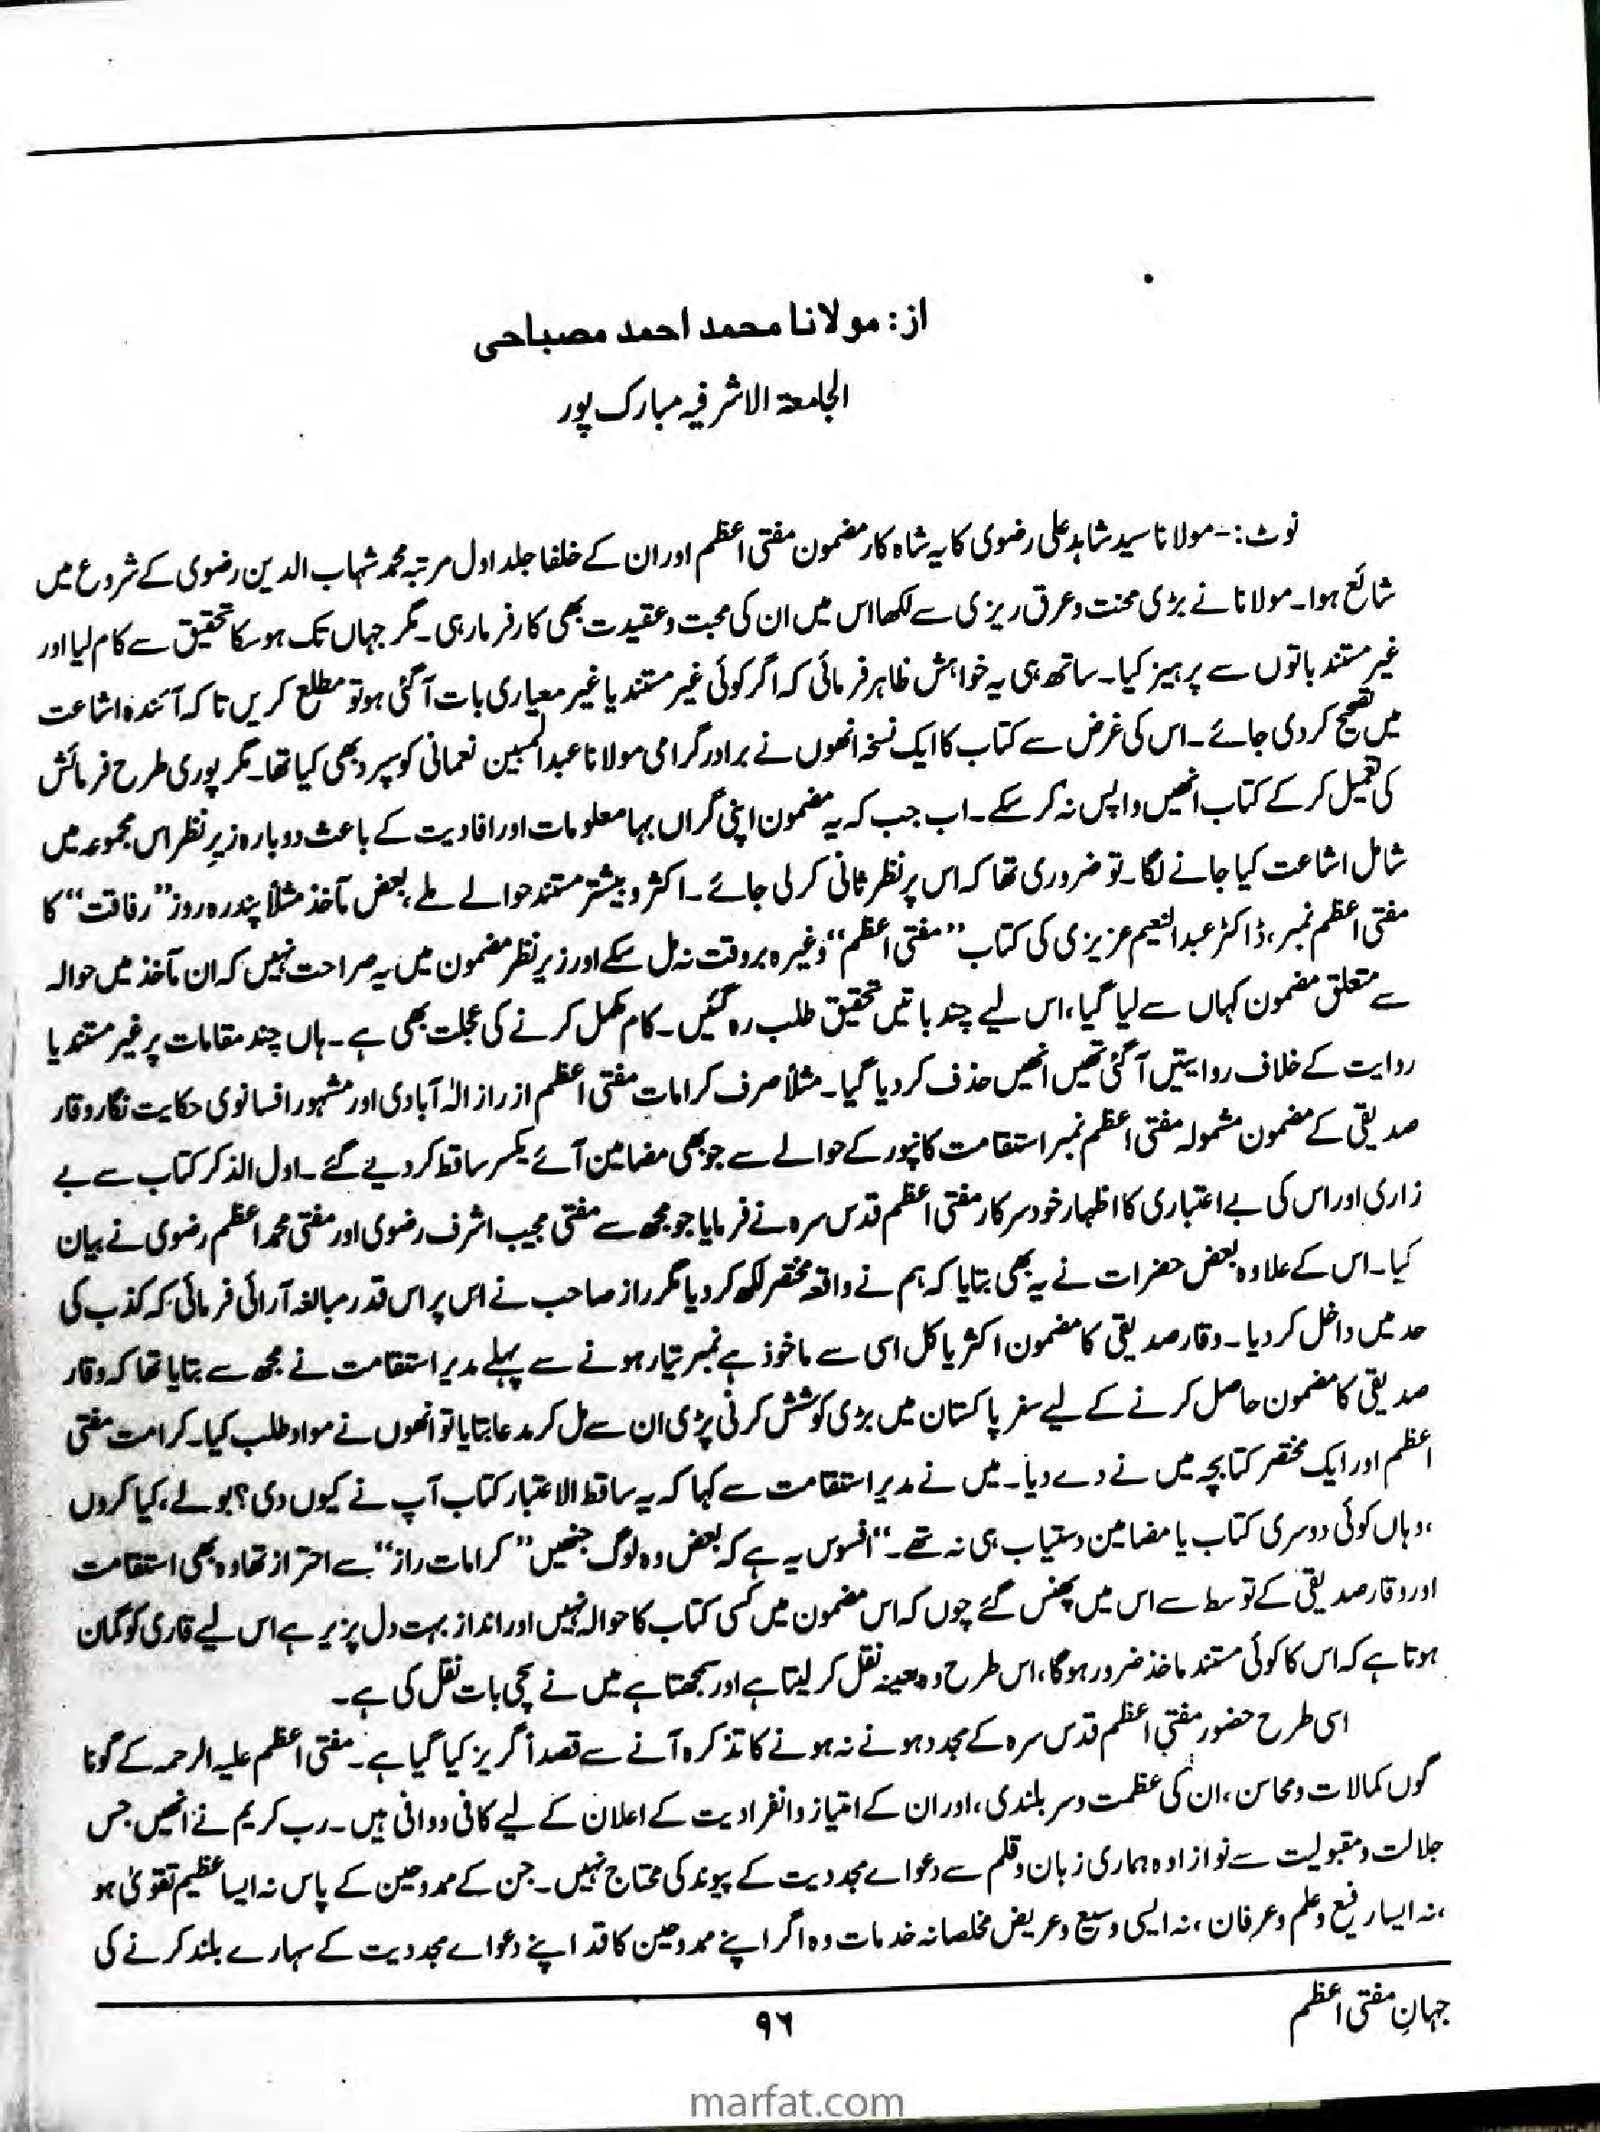 از: مولانا محمد احمد مصباحی
الجامعۃ الاشرفیہ مبارک پور
نوٹ:- مولانا سید شاہد علی رضوی کا یہ شاہ کار مضمون مفتی اعظم اور ان کے خلفا جلد اول مرتبہ محمد شہاب الدین رضوی کے شروع میں
شائع ہوا۔ مولانا نے بڑی محنت و عرق ریزی سے لکھا اس میں ان کی محبت و عقیدت بھی کارفرما رہی۔ مگر جہاں تک ہو سکا تحقیق سے کام لیا اور
غیر مستند باتوں سے پرہیز کیا۔ ساتھ ہی یہ خواہش ظاہر فرمائی کہ اگر کوئی غیر مستند یا غیر معیاری بات آگئی ہو تو مطلع کریں تاکہ آئندہ اشاعت
میں تصحیح کر دی جائے۔ اس کی غرض سے کتاب کا ایک نسخہ انھوں نے برادر گرامی مولانا عبدالمبین نعمانی کو سپرد بھی کیا تھا۔ مگر پوری طرح فرمائش
کی تعمیل کر کے کتاب انھیں واپس نہ کر سکے۔ اب جب کہ یہ مضمون اپنی گراں بہا معلومات اور افادیت کے باعث دوبارہ زیرِ نظر اس مجموعہ میں
شامل اشاعت کیا جانے لگا۔ تو ضروری تھا کہ اس پر نظر ثانی کر لی جائے۔ اکثر و بیشتر مستند حوالے ملے، بعض مآخذ مثلاً پندرہ روز ”رفاقت“ کا
مفتی اعظم نمبر، ڈاکٹر عبدالنعیم عزیزی کی کتاب ”مفتی اعظم“ وغیرہ بروقت نہ مل سکے اور زیر نظر مضمون میں یہ صراحت نہیں کہ ان مآخذ میں حوالہ
سے متعلق مضمون کہاں سے لیا گیا، اس لیے چند باتیں تحقیق طلب رہ گئیں۔ کام مکمل کرنے کی عجلت بھی ہے۔ ہاں چند مقامات پر غیر مستند یا
روایت کے خلاف روایتیں آگئی تھیں انھیں حذف کر دیا گیا۔ مثلاً صرف کرامات مفتی اعظم از راز الٰہ آبادی اور مشہور افسانوی حکایت نگار وقار
صدیقی کے مضمون مشمولہ مفتی اعظم نمبر استقامت کانپور کے حوالے سے جو بھی مضامین آئے یکسر ساقط کر دیے گئے۔ اول الذکر کتاب سے بے
زاری اور اس کی بے اعتباری کا اظہار خود سرکار مفتی اعظم قدس سرہ نے فرمایا جو مجھ سے مفتی مجیب اشرف رضوی اور مفتی محمد اعظم رضوی نے بیان
کیا۔ اس کے علاوہ بعض حضرات نے یہ بھی بتایا کہ ہم نے واقعہ مختصر لکھ کر دیا مگر راز صاحب نے اس پر اس قدر مبالغہ آرائی فرمائی کہ کذب کی
حد میں داخل کر دیا۔ وقار صدیقی کا مضمون اکثر یا کل اسی سے ماخوذ ہے نمبر تیار ہونے سے پہلے مدیر استقامت نے مجھ سے بتایا تھا کہ وقار
صدیقی کا مضمون حاصل کرنے کے لیے سفر پاکستان میں بڑی کوشش کرنی پڑی ان سے مل کر مدعا بتایا تو انھوں نے مواد طلب کیا۔ کرامت مفتی
اعظم اور ایک مختصر کتابچہ میں نے دے دیا۔ میں نے مدیر استقامت سے کہا کہ یہ ساقط الاعتبار کتاب آپ نے کیوں دی؟ بولے، کیا کروں
، وہاں کوئی دوسری کتاب یا مضامین دستیاب ہی نہ تھے۔“ افسوس یہ ہے کہ بعض وہ لوگ جنھیں ”کرامات راز“ سے احتراز تھا وہ بھی استقامت
اور وقار صدیقی کے توسط سے اس میں پھنس گئے چوں کہ اس مضمون میں کسی کتاب کا حوالہ نہیں اور انداز بہت دل پزیر ہے اس لیے قاری کو گمان
ہوتا ہے کہ اس کا کوئی مستند ماخذ ضرور ہوگا، اس طرح وہ بعینہ نقل کر لیتا ہے اور سمجھتا ہے میں نے سچی بات نقل کی ہے۔
اسی طرح حضور مفتیِ اعظم قدس سرہ کے مجدد ہونے نہ ہونے کا تذکرہ آنے سے قصداً گریز کیا گیا ہے۔ مفتی اعظم علیہ الرحمہ کے گونا
گوں کمالات و محاسن، ان کی عظمت و سربلندی، اور ان کے امتیاز و انفرادیت کے اعلان کے لیے کافی و وافی ہیں۔ رب کریم نے انھیں جس
جلالت و مقبولیت سے نوازا وہ ہماری زبان و قلم سے دعواے مجددیت کے پیوند کی محتاج نہیں۔ جن کے ممدوحین کے پاس نہ ایسا عظیم تقویٰ ہو
، نہ ایسا رفیع و علم و عرفان، نہ ایسی وسیع و عریض مخلصانہ خدمات وہ اگر اپنے ممدوحین کا قد اپنے دعواے مجددیت کے سہارے بلند کرنے کی
جہانِ مفتی اعظم
۹۶
marfat.com